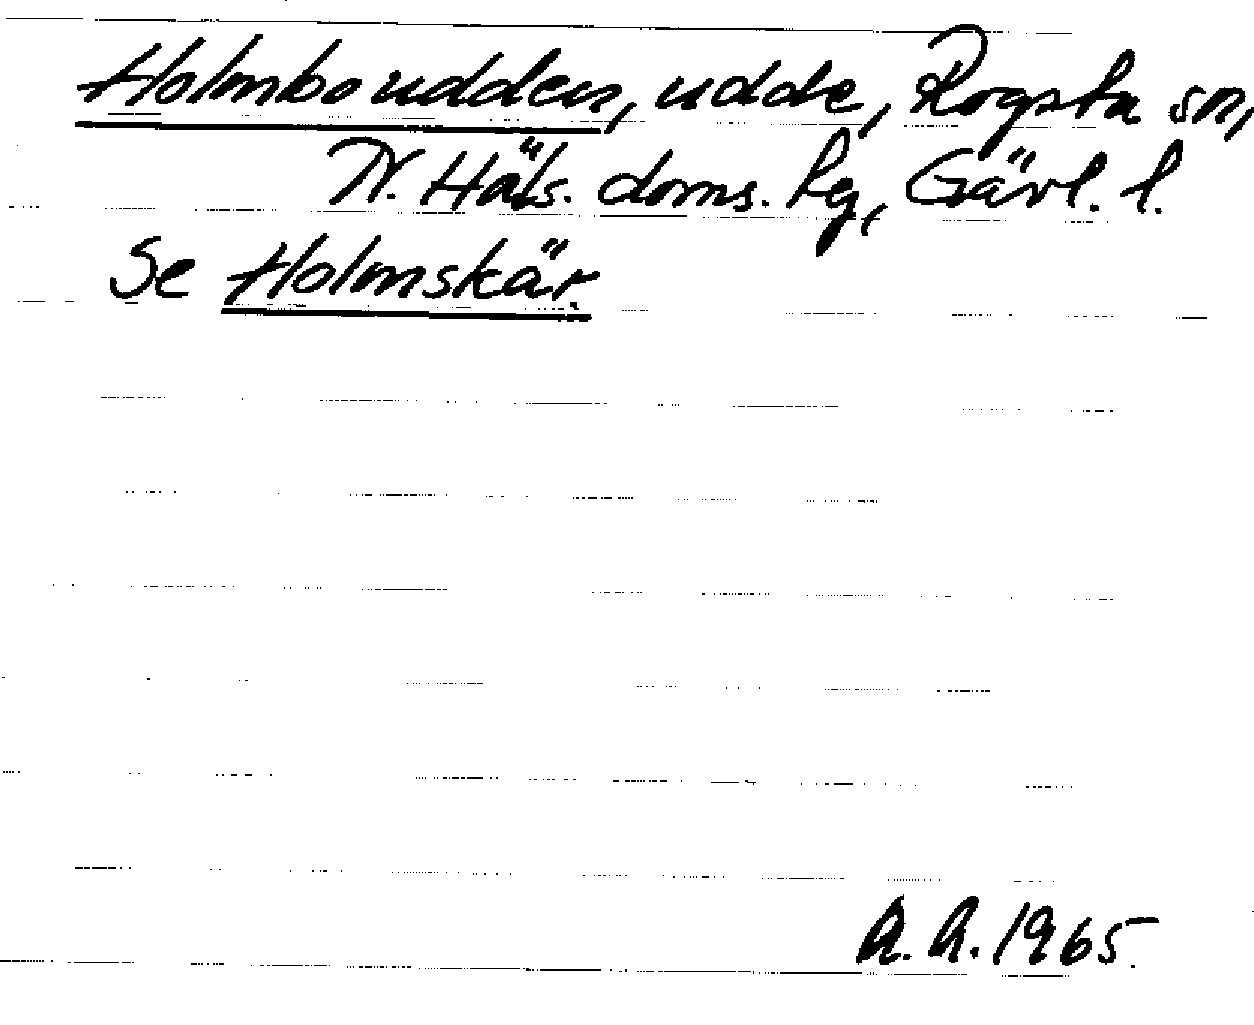 Holmboudden, udde, Rogsta sn,
N. Häls. doms. hg, Gävl. l.
Se Holmskär.
A. A. 1965.